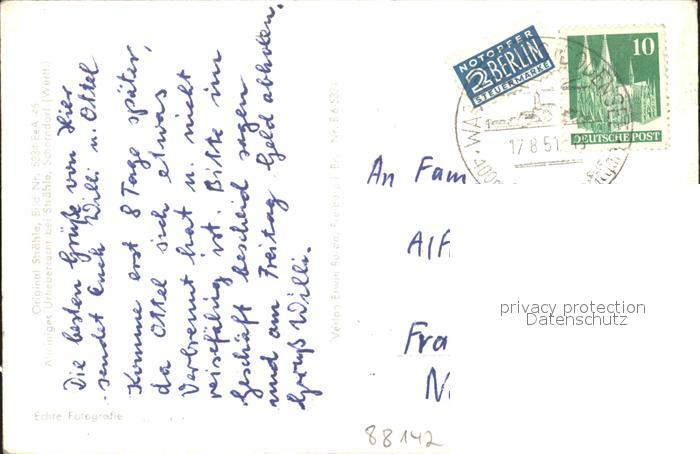 Die besten Grüße von Hier
sendet Euch Willi u. Ottel
Komme erst 8 Tage später,
da Ottel sich etwas
Verbrennt hat u. nicht
reisefähig ist. Bitte im
Geschäft bescheid sagen
und am Freitag Geld abholen.
Gruß Willi.
Original Strähle, Bild Nr. 5334
Alleiniges Urheberrecht bei Strähle, Schorndorf (Württ.)
Echte Fotografie
Verlag Erwin
NOTOPFER
2 BERLIN
STEUERMARKE
10
DEUTSCHE POST
17.8.51
An Fam
Alf
Fra
N
privacy protection
Datenschutz
88142